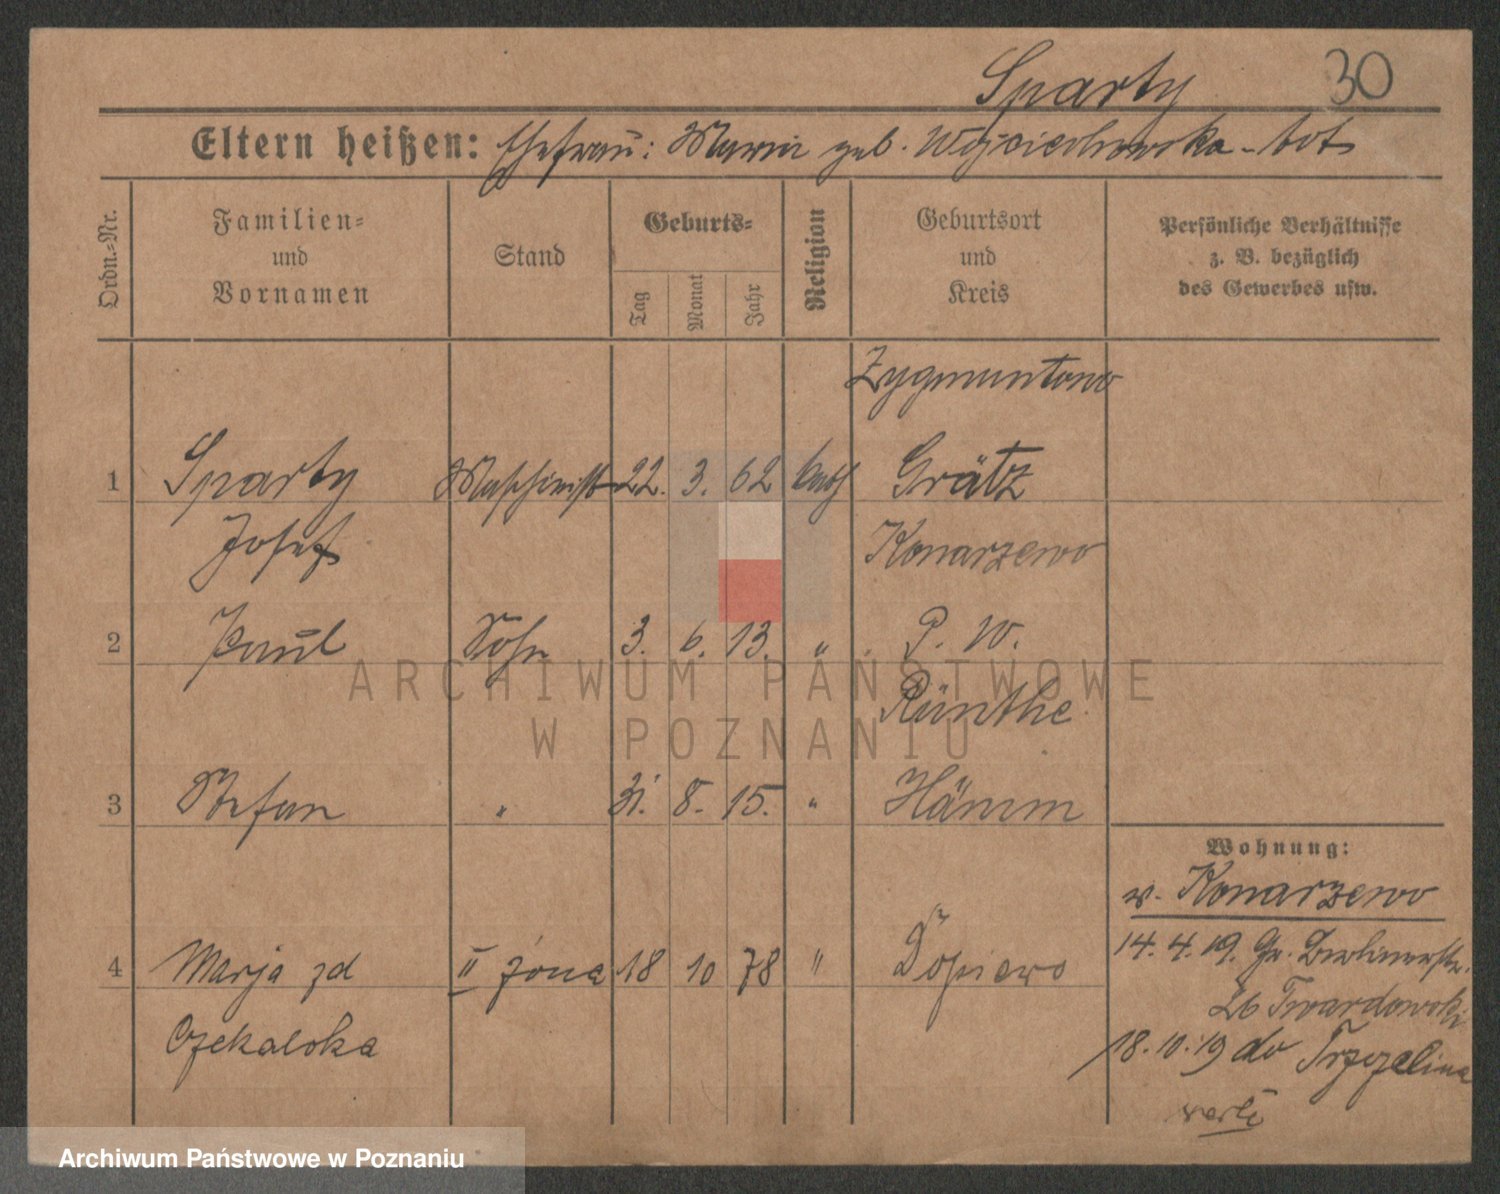 Sparty 30
Eltern heißen: Ehefrau: Maria geb. Wojciechowska - tot
Ordn.-Nr.
Familien-
und
Vornamen
Stand
Geburts-
Tag
Monat
Jahr
Religion
Geburtsort
und
Kreis
Persönliche Verhältnisse
z. B. bezüglich
des Gewerbes usw.
Zygmuntowo
1 Sparty Maschinist 22. 3. 62 kath Grätz
Josef Konarzewo
2 Paul Sohn 3. 6. 13. " P. W.
Rünthe
3 Stefan " 31. 8. 15. " Hamm
Wohnung:
v. Konarzewo
4 Marja zd II żona 18 10 78 " Dopiewo
Czekalska
14. 4. 19. Gr. Berlinerstr.
26 Twardowski
18. 10. 19 do Trzcielina
ARCHIWUM PAŃSTWOWE
W POZNANIU
Archiwum Państwowe w Poznaniu